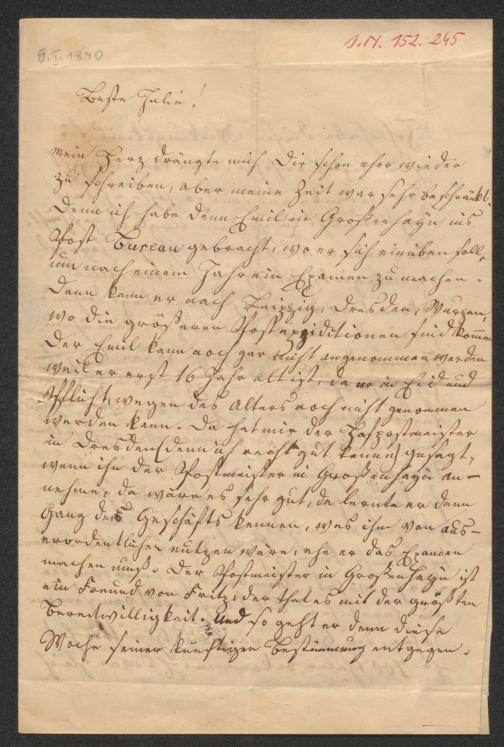 9.I.1840
I.N. 152.245
Beste Julie!
Mein Herz drängte mich Dir schon eher wieder
zu schreiben, aber meine Zeit war sehr beschränkt.
Denn ich habe den Emil in Großenhayn ins
Post Bureau gebracht, wo er sich einüben soll,
um nach einem Jahr ein Examen zu machen.
Dann kann er nach Leipzig, Dresden, Wurzen,
wo die größeren Postexpiditionen sind kommen
Der Emil kann noch gar nicht angenommen werden
weil er erst 16 Jahr alt ist, da er in Eid und
Pflicht, wegen des Alters noch nicht genommen
werden kann. Da hat mir der Hofpostmeister
in Dresden (den ich recht gut kenne) gesagt,
wenn ihn der Postmeister in Großenhayn an-
nehme, da wäre es sehr gut, da lernte er den
Gang des Geschäfts kennen, was ihm von aus-
erordentlichen nutzen wäre, ehe er das Examen
machen muß. Der Postmeister in Großenhayn ist
ein Freund von Fritz, der that es mit der größten
Bereitwilligkeit. Und so geht er denn diese
Woche seiner künftigen Bestimmung entgegen.